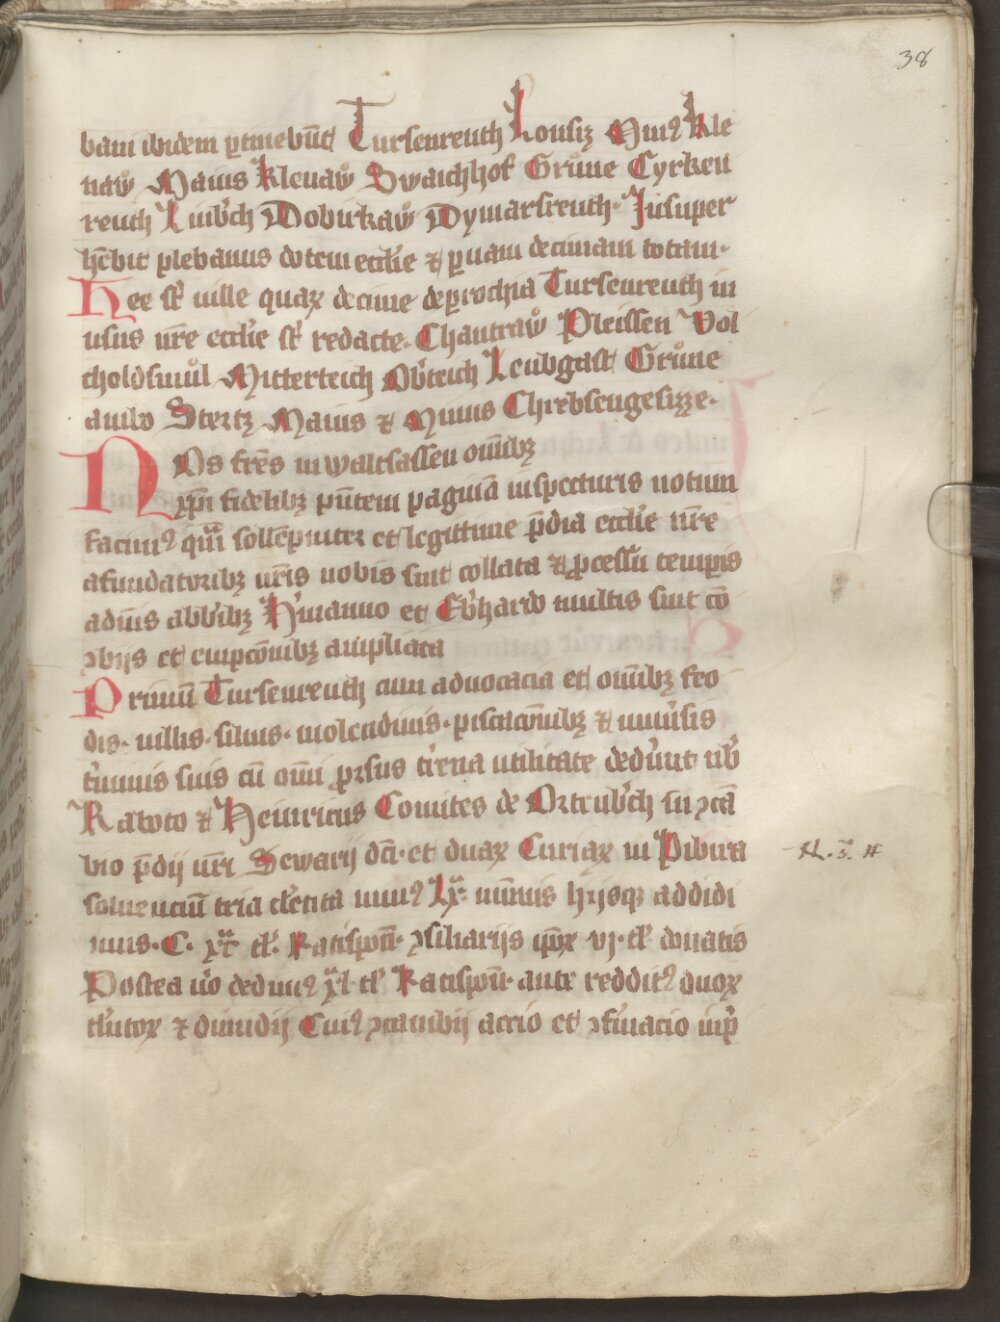 38
bani ibidem ꝑtinebūt Tursenreuth Lonsiz Minꝰ Kle
naẘ Maius Klenaẘ Swaichhof Grůne Cyrken
reuth Luib̾ch Dobirkaẘ Dymarsreuth· Insuper
hēbit plebanus dotem ecclīe ⁊ ꝑuam decimam totam·
Hee st̄ uille quaꝝ decime de ꝑrochia Tursenreuth in
usus nr̄e ecclīe st̄ redacte. Chantraẘ Pleissen Vol
tholdsmůl Mitterteich Ob̾teich Leubgast Grůne
aulw Stertz Maius ⁊ Minus Chirbsengesizze·
NOs fr̄es in waltsassen om̄ibꝫ
xp̄i fidelibꝫ pn̄tem paginā inspecturis notum
facimꝰ qm̄ sollēpniter et legittime p̄dia ecclīe nr̄e
afundatoribꝫ nr̄is nobis sint collata ⁊ ꝓcessu temꝑis
adiūis abb̄ibꝫ H̾manno et Eb̾hardo multis sint cō
ꝯbijs et empcōnibꝫ ampliata
Primū Tursenreuth cum aduocacia et om̄ibꝫ feo
dis· uillis· siluis· molendinis· piscacōnibꝫ ⁊ uniu̾sis
t̾minis suis cū om̄i ꝓrsus t̾rena utilitate ded̾unt nob̄
Rapoto ⁊ Heinricus Comites de Ortenb̾ch in ꝯcā
bio p̄dij nr̄i Sewarij dc̄i· et duaꝝ Curiaꝝ in Pibura
soluenciū tria t̾lenta minꝰ Lx̄· nūmis hijsqꝫ addidi
mus· C· tł· Ratispoñ· ꝯsiliarijs ip̄oꝝ vj· tł donatis
Postea u̾o dedimꝰ xł tł Ratispoñ· ante redditꝰ duoꝝ
t̾lentoꝝ ⁊ dimidij Cuiꝰ ꝯcambij actio et ꝯfirmacio